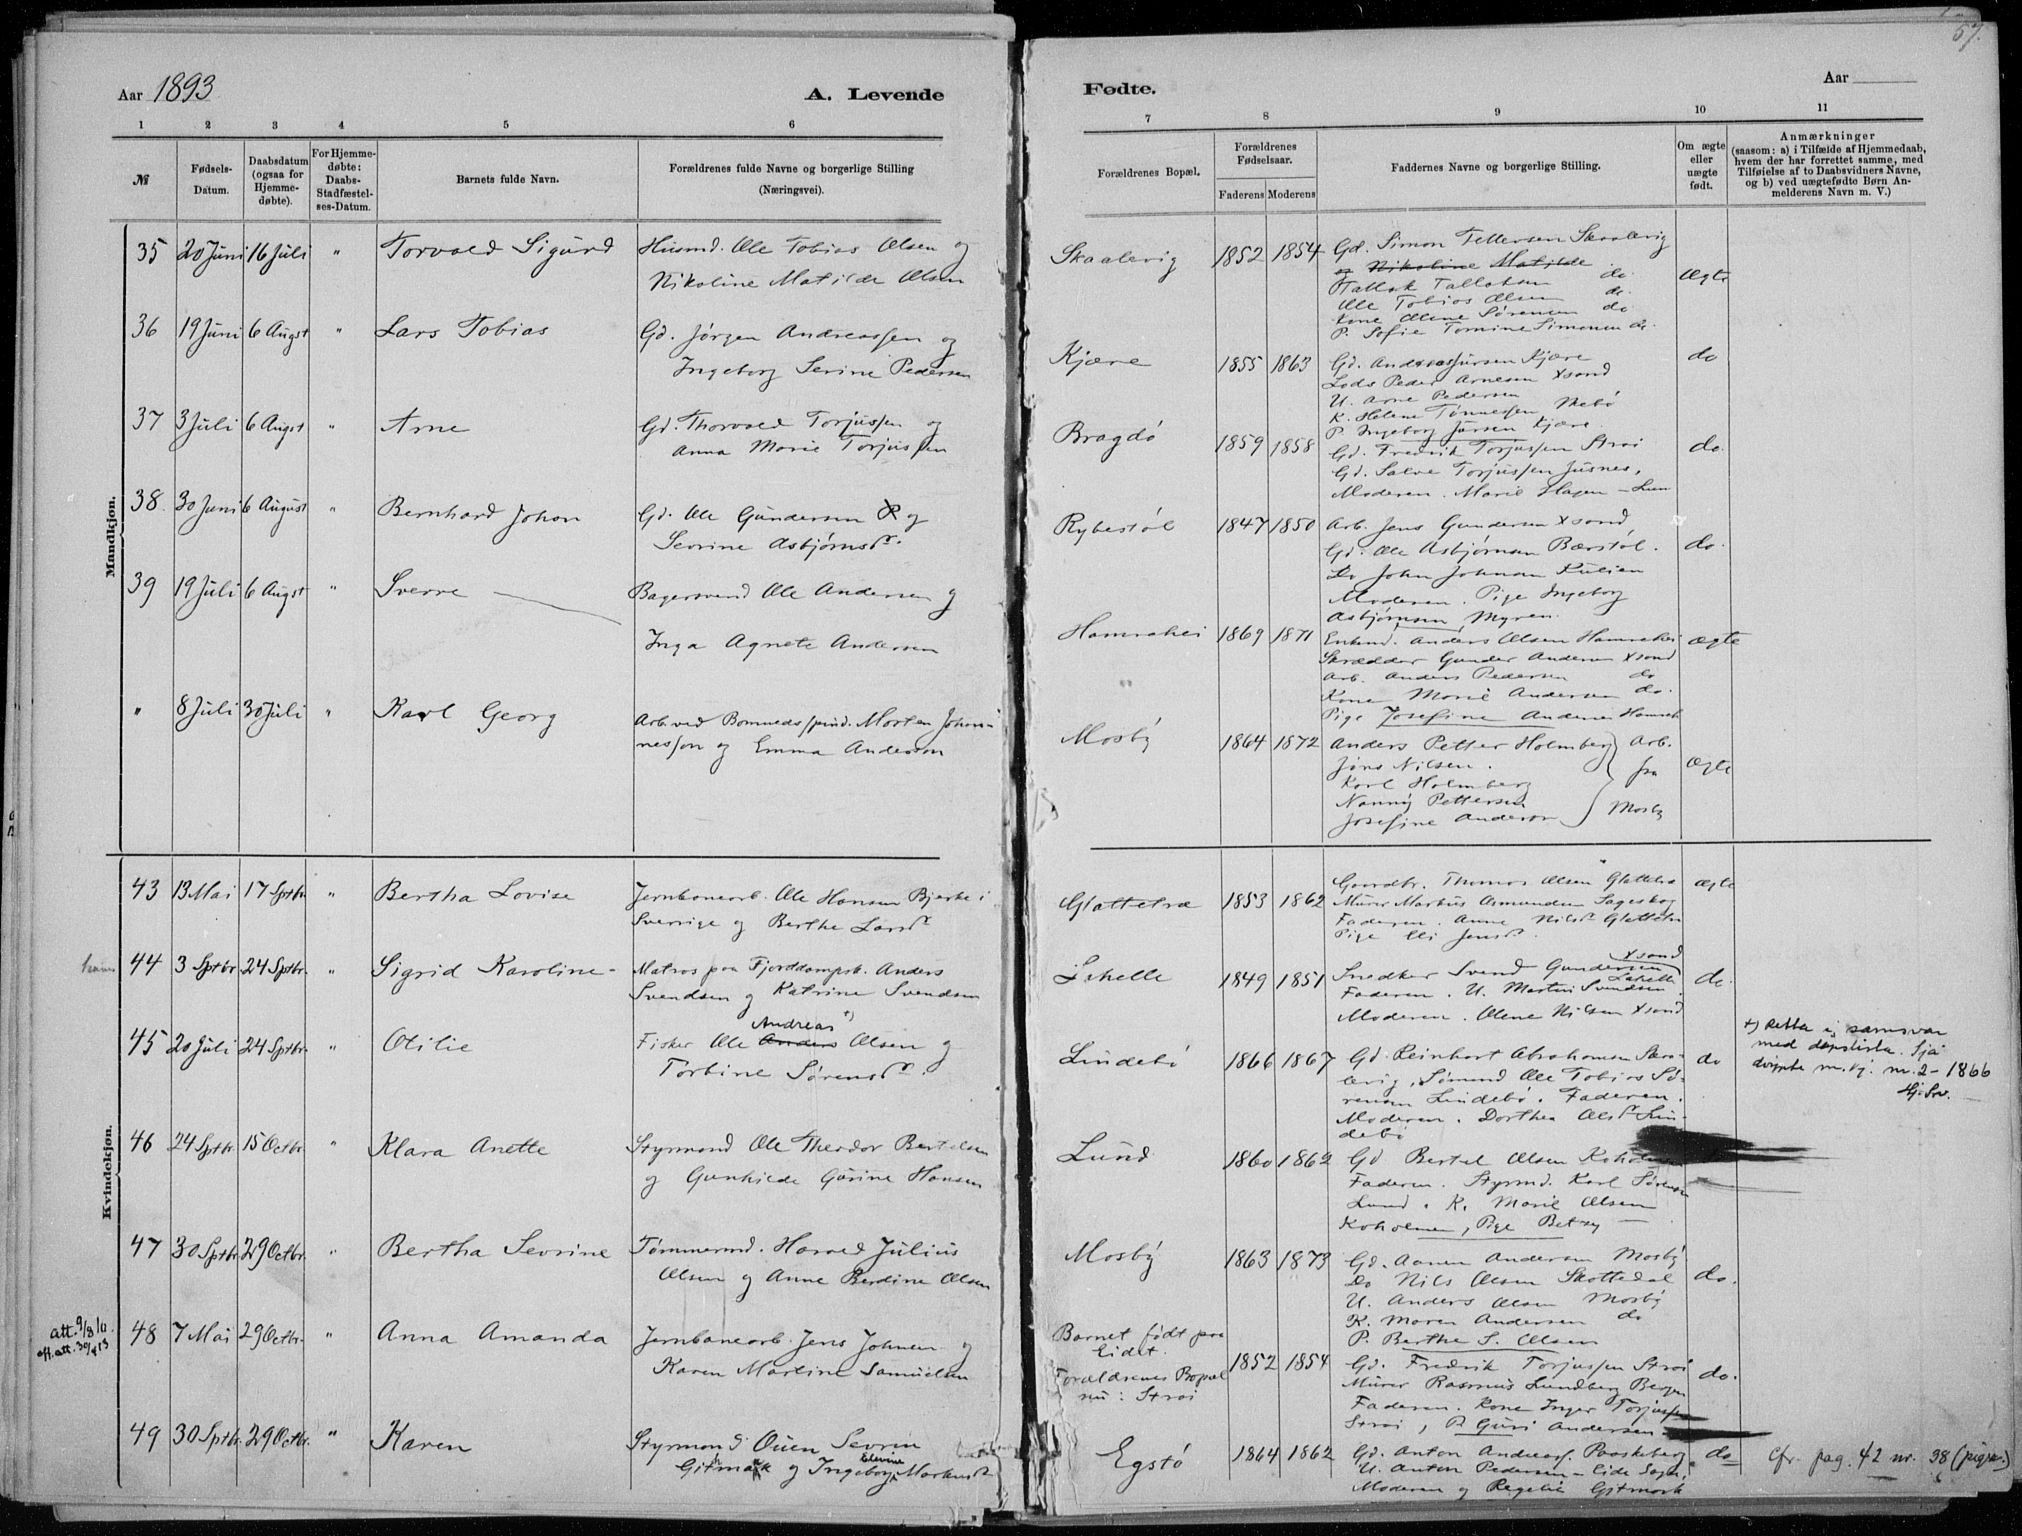 57.
Aar 1893
A. Levende
Fødte.
Aar
1 2 3 4 5 6
7 8 9 10 11
№
Fødsels-
Datum.
Daabsdatum
(ogsaa for
Hjemme-
døbte).
For Hjemme-
døbte:
Daabs-
Stadfæstel-
ses-Datum.
Barnets fulde Navn.
Forældrenes fulde Navne og borgerlige Stilling
(Næringsvei).
Forældrenes Bopæl.
Forældrenes
Fødselsaar.
Faderens Moderens
Faddernes Navne og borgerlige Stilling.
Om ægte
eller
uægte
født.
Anmærkninger
(saasom: a) i Tilfælde af Hjemmedaab,
hvem der har forrettet samme, med
Tilføielse af to Daabsvidners Navne,
og b) ved uægtefødte Børn An-
melderens Navn m. V.)
Mandkjøn.
35 20 Juni 16 Juli " Torvald Sigurd Husmd. Ole Tobias Olsen og
Nikoline Matilde Olsen
Skaalevig 1852 1854 Gd. Simon Tellefsen Skaalevig
og Nikoline Matilde do.
Tallak Tallaksen do.
Ole Tobias Olsen do
Kone Oline Sørensen do
P. Sofie Tomine Simonsen do.
Ægte
36 19 Juni 6 Augst " Lars Tobias Gd. Jørgen Andreassen og
Ingeborg Serine Pedersen
Kjære 1855 1863 Gd. Andreas Jürsen Kjære
Lods Peder Arnesen Xsand
U. Arne Pedersen
K. Helene Tønnesen
P. Ingeborg Jürsen Kjære
do
37 3 Juli 6 Augst " Arne Gd. Thorvald Torjussen og
Anna Marie Torjussen
Bragdö 1859 1858 Gd. Fredrik Torjussen Stroi
Gd. Salve Torjussen
Moderen. Marie Hagen - Lun
do.
38. 30 Juni 6 August " Bernhard Johan Gd. Ole Gundersen R og
Sevrine Asbjørnsdr.
Rybestöl 1847 1850 Arb. Jens Gundersen Xsand
Gd. Ole Asbjørnsen Bærstöl.
Do John Johnsen Kulien
Moderen. Pige Ingeborg
Asbjørnsen, Myren.
do.
39 19 Juli 6 Augst " Sverre Bagersvend Ole Andersen og
Inga Agnete Andersen
Hamrehei 1869 1871 Enkmd. Anders Olsen Hamrehei
Skrædder Gunder Andersen Xsand
Arb. Anders Pedersen do
Kone Marie Andersen do.
Pige Josefine Andersen Hamreh
ægte
" 8 Juli 30 Juli " Karl Georg Arb. ved Bomuldsspind. Morten Johan-
nesson og Emma Anderson
Mosby 1864 1872 Anders Petter Holmberg Arb.
Jöns Nilsen. fra
Karl Holmberg
Nanny Pettersen Mosby
Josefine Anderson
ægte
Kvindekjøn.
43 13 Mai 17 Sptbr " Bertha Lovise Jernbanearb. Ole Hansen Bjerke i
Sverrige og Berthe Larsdr
Glattetræ 1853 1862 Gaardbr. Thomas Olsen Glattetre
Murer Markus Asmundsen Sageskog
Faderen. Anne Nilsdr Glattetre
Pige Eli Jensdr.
ægte
44 3 Sptbr 24 Sptbr. " Sigrid Karoline Matros paa Fjorddampsk. Anders
Svendsen og Katrine Svendsen
Lahelle 1849 1851 Snedker Svend Gundersen Xsand
Faderen. U. Martin Svendsen Lahelle
Moderen. Olene Nilsen Xsand
do.
45 20 Juli 24 Sptbr. " Otilie Fisker Ole Anders Andreas +) Olsen og
Torbine Sørensdr.
Lindebö 1866 1867 Gd. Reinhart Abrahamsen Skaa-
levig, Sömand Ole Tobias Sö-
rensen Lindebö. Faderen.
Moderen. Dorthea Olsdr Lin-
debö
do
+) Retta ij samsvar
med dåpslista. Sjå
døypte m.kj. nr. 2 - 1866
46 24 Sptbr 15 Octbr " Klara Anette Styrmand Ole Theodor Bertelsen
og Gunhilde Gurine Hansen
Lund 1860 1862 Gd Bertel Olsen Koholmen
Faderen. Styrmd. Karl Sörensen
Lund. K. Marie Olsen
Koholmen, Pige Betzy —
47 30 Sptbr 29 Octbr. " Bertha Sevrine Tømmermd. Harald Julius
Olsen og Anne Berdine Olsen
Mosby 1863 1873 Gd. Aanen Andersen Mosby
Do Nils Olsen Skottedal
U. Anders Olsen Mosby
K. Maren Andersen do
P. Berthe S. Olsen
do.
att. 9/8/11.
48 7 Mai 29 Octbr. " Anna Amanda Jernbanearb. Jens Johnsen og
Karen Martine Samuelsen
Barnet födt paa
Eidet.
Forældrenes Bopæl
nu: Stroi
1852 1854 Gd. Fredrik Torjussen Stroi
Murer Rasmus Lundberg Bergen
Faderen. Kone Inger Torjussen
Stroi, P. Guri Andersen
do.
49 30 Sptbr. 29 Octbr. " Karen Styrmand Ouen Sevrin
Gitmark og Ingeborg Elevine Markusdr
Egstö 1864 1862 Gd. Anton Andreas. Paaskeberg
U. Anton Pedersen - Eide Sogn,
Moderen og Regelie Gitmark
do
Cfr. pag. 42 nr. 38 (pigen.)